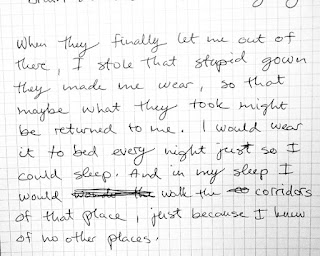 When they finally let me out of
there, I stole that stupid gown
they made me wear, so that
maybe what they took might
be returned to me. I would wear
it to bed every night just so I
could sleep. And in my sleep I
would walk the corridors
of that place, just because I knew
of no other places.